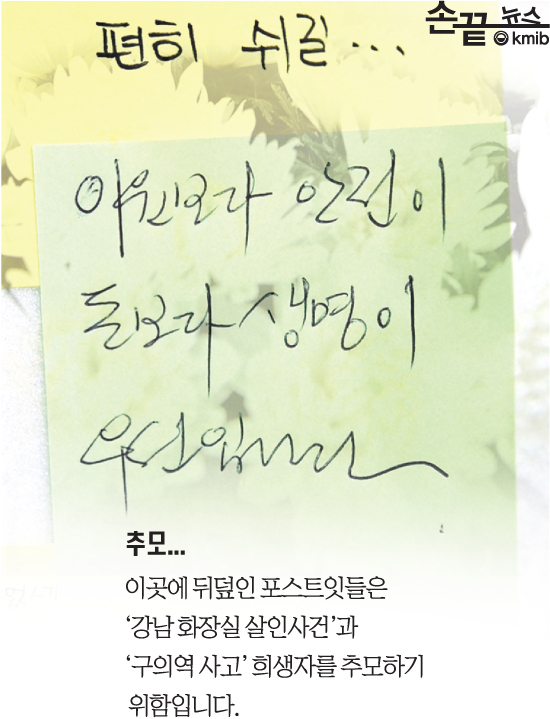 손끝 뉴스
kmib
편히 쉬길...
이윤보다 안전이
돈보다 생명이
우선입니다
추모...
이곳에 뒤덮인 포스트잇들은
‘강남 화장실 살인사건’과
‘구의역 사고’ 희생자를 추모하기
위함입니다.